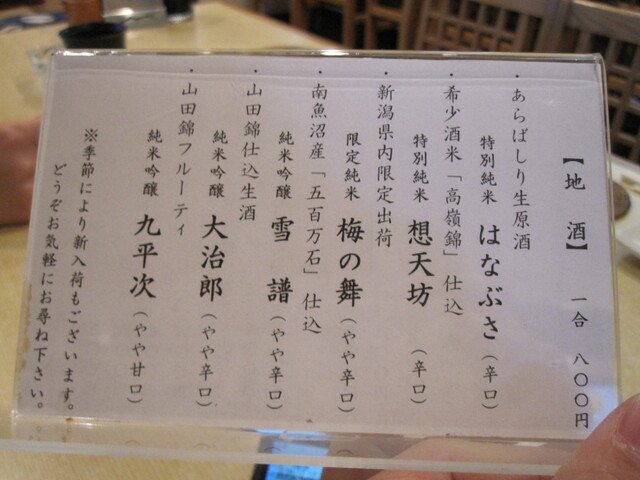 【地 酒】 一合 八〇〇円
・あらばしり生原酒
特別純米 はなぶさ（辛口）
・希少酒米「高嶺錦」仕込
特別純米 想天坊（辛口）
・新潟県内限定出荷
限定純米 梅の舞（やや辛口）
・南魚沼産「五百万石」仕込
純米吟醸 雪譜（やや辛口）
・山田錦仕込生酒
純米吟醸 大治郎（やや辛口）
・山田錦フルーティ
純米吟醸 九平次（やや甘口）
※季節により新入荷もございます。
どうぞお気軽にお尋ね下さい。